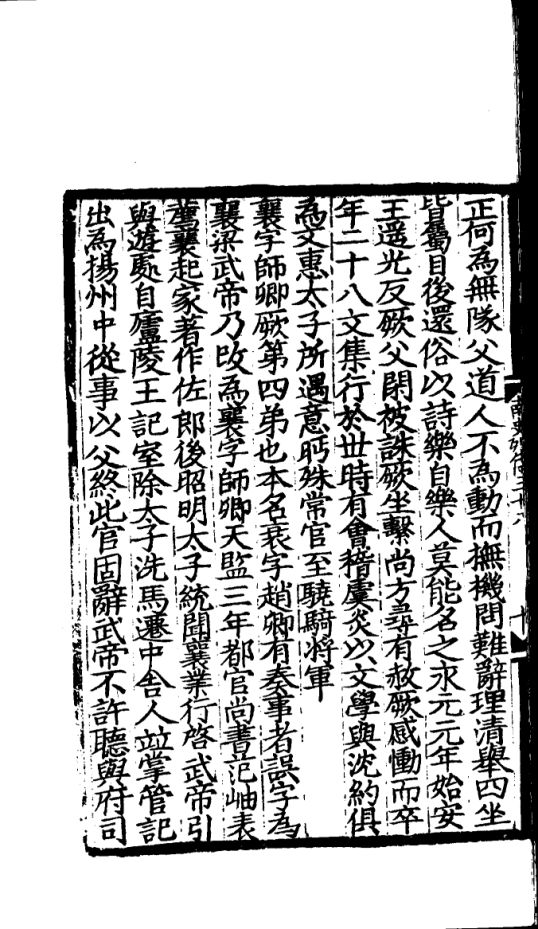 正何為無隊父道人不為動而撫機問難辭理清舉四坐
皆屬目後還俗以詩樂自樂人莫能名之永元元年始安
王遥光反厥父閑被誅厥坐繫尚方尋有赦厥感慟而卒
年二十八文集行於世時有會稽虞炎以文學與沈約俱
為文惠太子所遇意眄殊常官至驍騎將軍
襄字師卿厥第四弟也本名衰字趙卿有奏事者誤字為
襄梁武帝乃改為襄字師卿天監三年都官尚書范岫表
薦襄起家著作佐郎後昭明太子統聞襄業行啓武帝引
與遊處自廬陵王記室除太子洗馬遷中舍人竝掌管記
出為揚州中從事以父終此官固辭武帝不許聽與府司